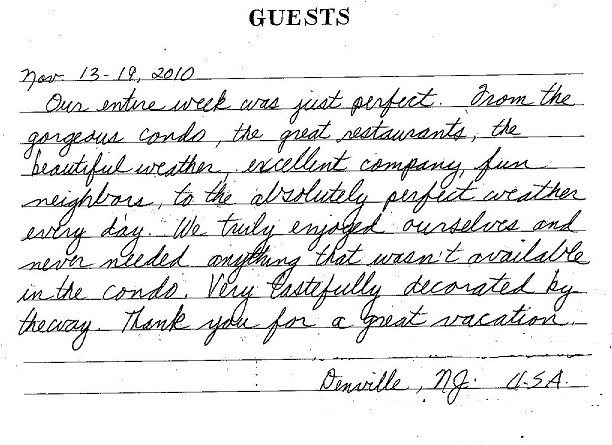 GUESTS
Nov. 13-19, 2010
Our entire week was just perfect. From the
gorgeous condo, the great restaurants, the
beautiful weather, excellent company, fun
neighbors, to the absolutely perfect weather
every day. We truly enjoyed ourselves and
never needed anything that wasn't available
in the condo. Very tastefully decorated by
theway. Thank you for a great vacation.
Denville, NJ. U.S.A.